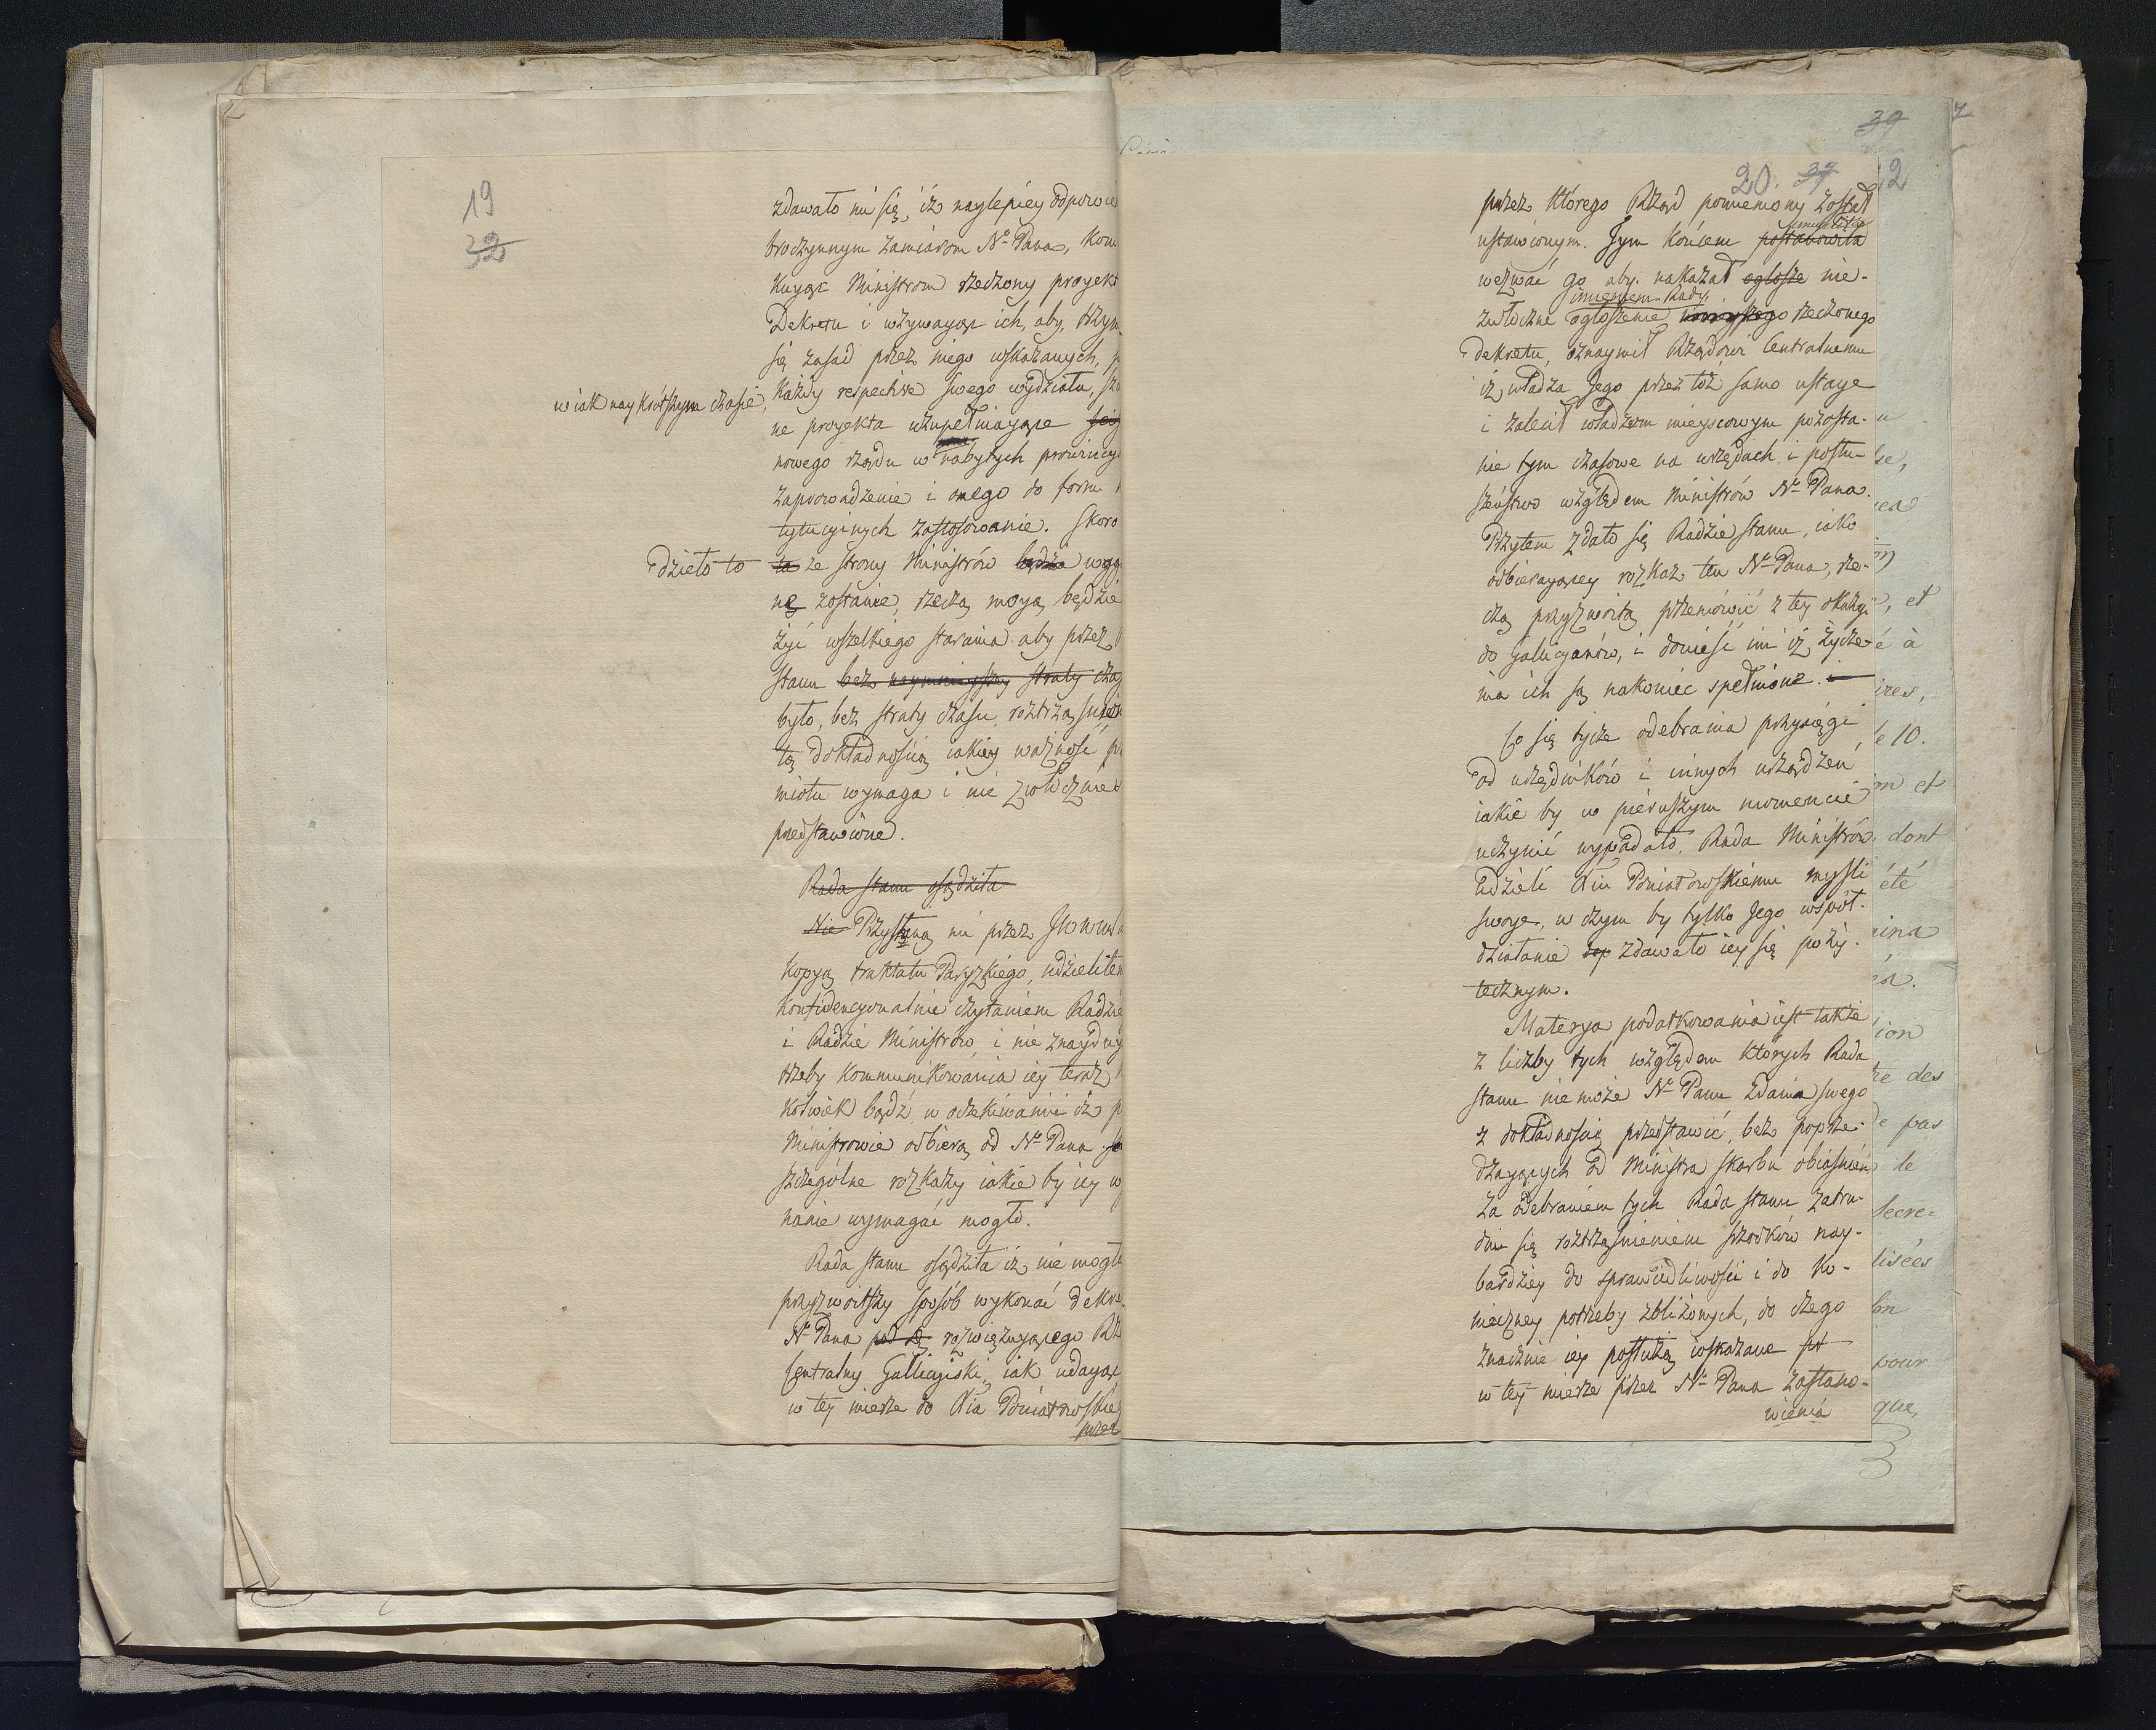 19
32
zdawało mi się, iż naylepiey odpowie
broczynnym zamiarom No Pana, kom
kuyąc Ministrom rzeczony proyekt
Dekretu i wzywaiąc ich, aby, trzym
się zasad przez niego wskazanych,
w iak naykrótszym czasie,
każdy respective swego wydziału,
ne proyekta uzupełniaiące
nowego rządu w nabytych prowincy
zaprowadzenie i onego do form
tytucyinych zastosowanie. Skoro
dzieło to
to ze strony Ministrów będzie
ne zostanie, rzeczą moyą będzie
żyć wszelkiego starania aby przez
Stanu bez naymnieyszey straty cza
było, bez straty czasu, roztrząśnion
tą dokładnością iakiey ważność
miotu wymaga i nie zwłocznie
przedstawione.
Rada Stanu osądziła
Nie Przysłaną mi przez
kopyą traktatu Paryzkiego, udzieliłem
konfidencyonalnie czytaniem Radzie
i Radzie Ministrów, i nie znayduy
trzeby kommunikowania iey teraz
kolwiek bądź, w oczekiwaniu iż
Ministrowie odbiorą od No Pana
szczególne rozkazy iakie by iey w
nanie wymagać mogło.
Rada Stanu osądziła iż nie mogła
przyzwoitszy sposób wykonać dekre
No Pana pod rozwięzuiącego Rz
Centralny Gallicyiski, iak udaiąc
w tey mierze do Xia Poniatowskie
przez
39
20. 37 12
przez którego Rząd pomieniony został
ustawionym. Tym końcem postanowiła
wezwać go aby nakazał ogłosze nie-
imieniem Rady
zwłoczne ogłoszenie rzeczonego
Dekretu, oznaymił Rządowi Centralnemu
iż władza Jego przez toż samo ustaye
i zalecił władzom mieyscowym pozosta-
nie tym czasowe na urzędach i posłu-
szeństwo względem Ministrów No Pana.
Przytem zdało się Radzie Stanu, iako
odbieraiącey rozkaz ten No Pana, rze-
czą przyzwoitą przemówić z tey okazyi
do Gallicyanów, i donieść im iż życze-
nia ich są nakoniec spełnione.
Co się tycze odebrania przysięgi
od urzędników i innych urządzeń
iakie by w pierwszym momencie
uczynić wypadało, Rada Ministrów
udzieli Xiu Poniatowskiemu myśli
swoye, w czym by tylko Jego współ-
działanie zdawało iey się poży-
tecznym.
Materya podatkowania iest także
z liczby tych względem których Rada
Stanu nie może No Panu zdania swego
z dokładnością przedstawić, bez poprze-
dzaiących od Ministra Skarbu obiaśnień
za odebraniem tych Rada Stanu zatru-
dni się roztrząśnieniem środków nay-
bardziey do sprawiedliwości i do ko-
nieczney potrzeby zbliżonych, do czego
znacznie iey posłużą wskazane
w tey mierze przez No Pana zastano-
wienia
, et
é à
ires,
le 10.
m et
dont
été
ion
re des
de pas
le
secre=
lisées
pour
que,